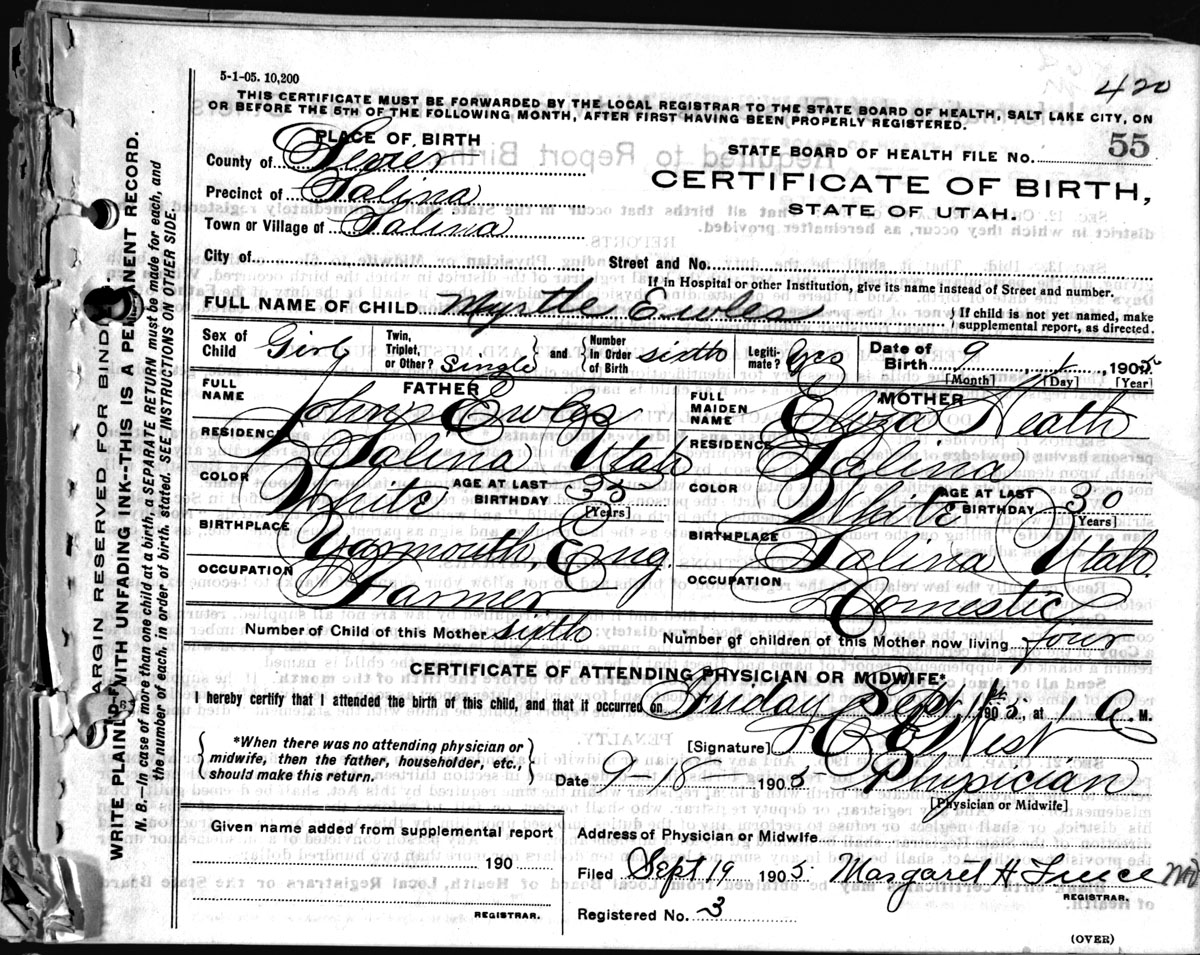 5-1-05. 10,200
420
THIS CERTIFICATE MUST BE FORWARDED BY THE LOCAL REGISTRAR TO THE STATE BOARD OF HEALTH, SALT LAKE CITY, ON
OR BEFORE THE 5TH OF THE FOLLOWING MONTH, AFTER FIRST HAVING BEEN PROPERLY REGISTERED.
PLACE OF BIRTH
County of Sevier
STATE BOARD OF HEALTH FILE NO. 55
Precinct of Salina
CERTIFICATE OF BIRTH,
STATE OF UTAH.
Town or Village of Salina
City of
Street and No.
If in Hospital or other Institution, give its name instead of Street and number.
FULL NAME OF CHILD Myrtle Ewles
{If child is not yet named, make supplemental report, as directed.
Sex of Child Girl
Twin, Triplet, or Other? Single} and {Number in Order of Birth sixth
Legiti-mate? yes
Date of Birth 9 1, 1905
[Month] [Day] [Year]
FATHER
FULL NAME John Ewles
RESIDENCE Salina Utah
COLOR White AGE AT LAST BIRTHDAY 35 [Years]
BIRTHPLACE Yarmouth Eng.
OCCUPATION Farmer
MOTHER
FULL MAIDEN NAME Eliza Heath
RESIDENCE Salina
COLOR White AGE AT LAST BIRTHDAY 30 [Years]
BIRTHPLACE Salina Utah.
OCCUPATION Domestic
Number of Child of this Mother sixth
Number of children of this Mother now living four
CERTIFICATE OF ATTENDING PHYSICIAN OR MIDWIFE*
I hereby certify that I attended the birth of this child, and that it occurred on Friday Sept. 1st 1905, at 1 A M.
{*When there was no attending physician or midwife, then the father, householder, etc., should make this return.}
[Signature] West
Date 9 18 1905 Physician
[Physician or Midwife]
Given name added from supplemental report
190
REGISTRAR.
Address of Physician or Midwife
Filed Sept 19 1905 Margaret H
REGISTRAR.
Registered No. 3
(OVER)
MARGIN RESERVED FOR BINDING
WRITE PLAINLY WITH UNFADING INK--THIS IS A PERMANENT RECORD.
N. B. In case of more than one child at a birth, a SEPARATE RETURN must be made for each, and
the number of each, in order of birth, stated. SEE INSTRUCTIONS ON OTHER SIDE.